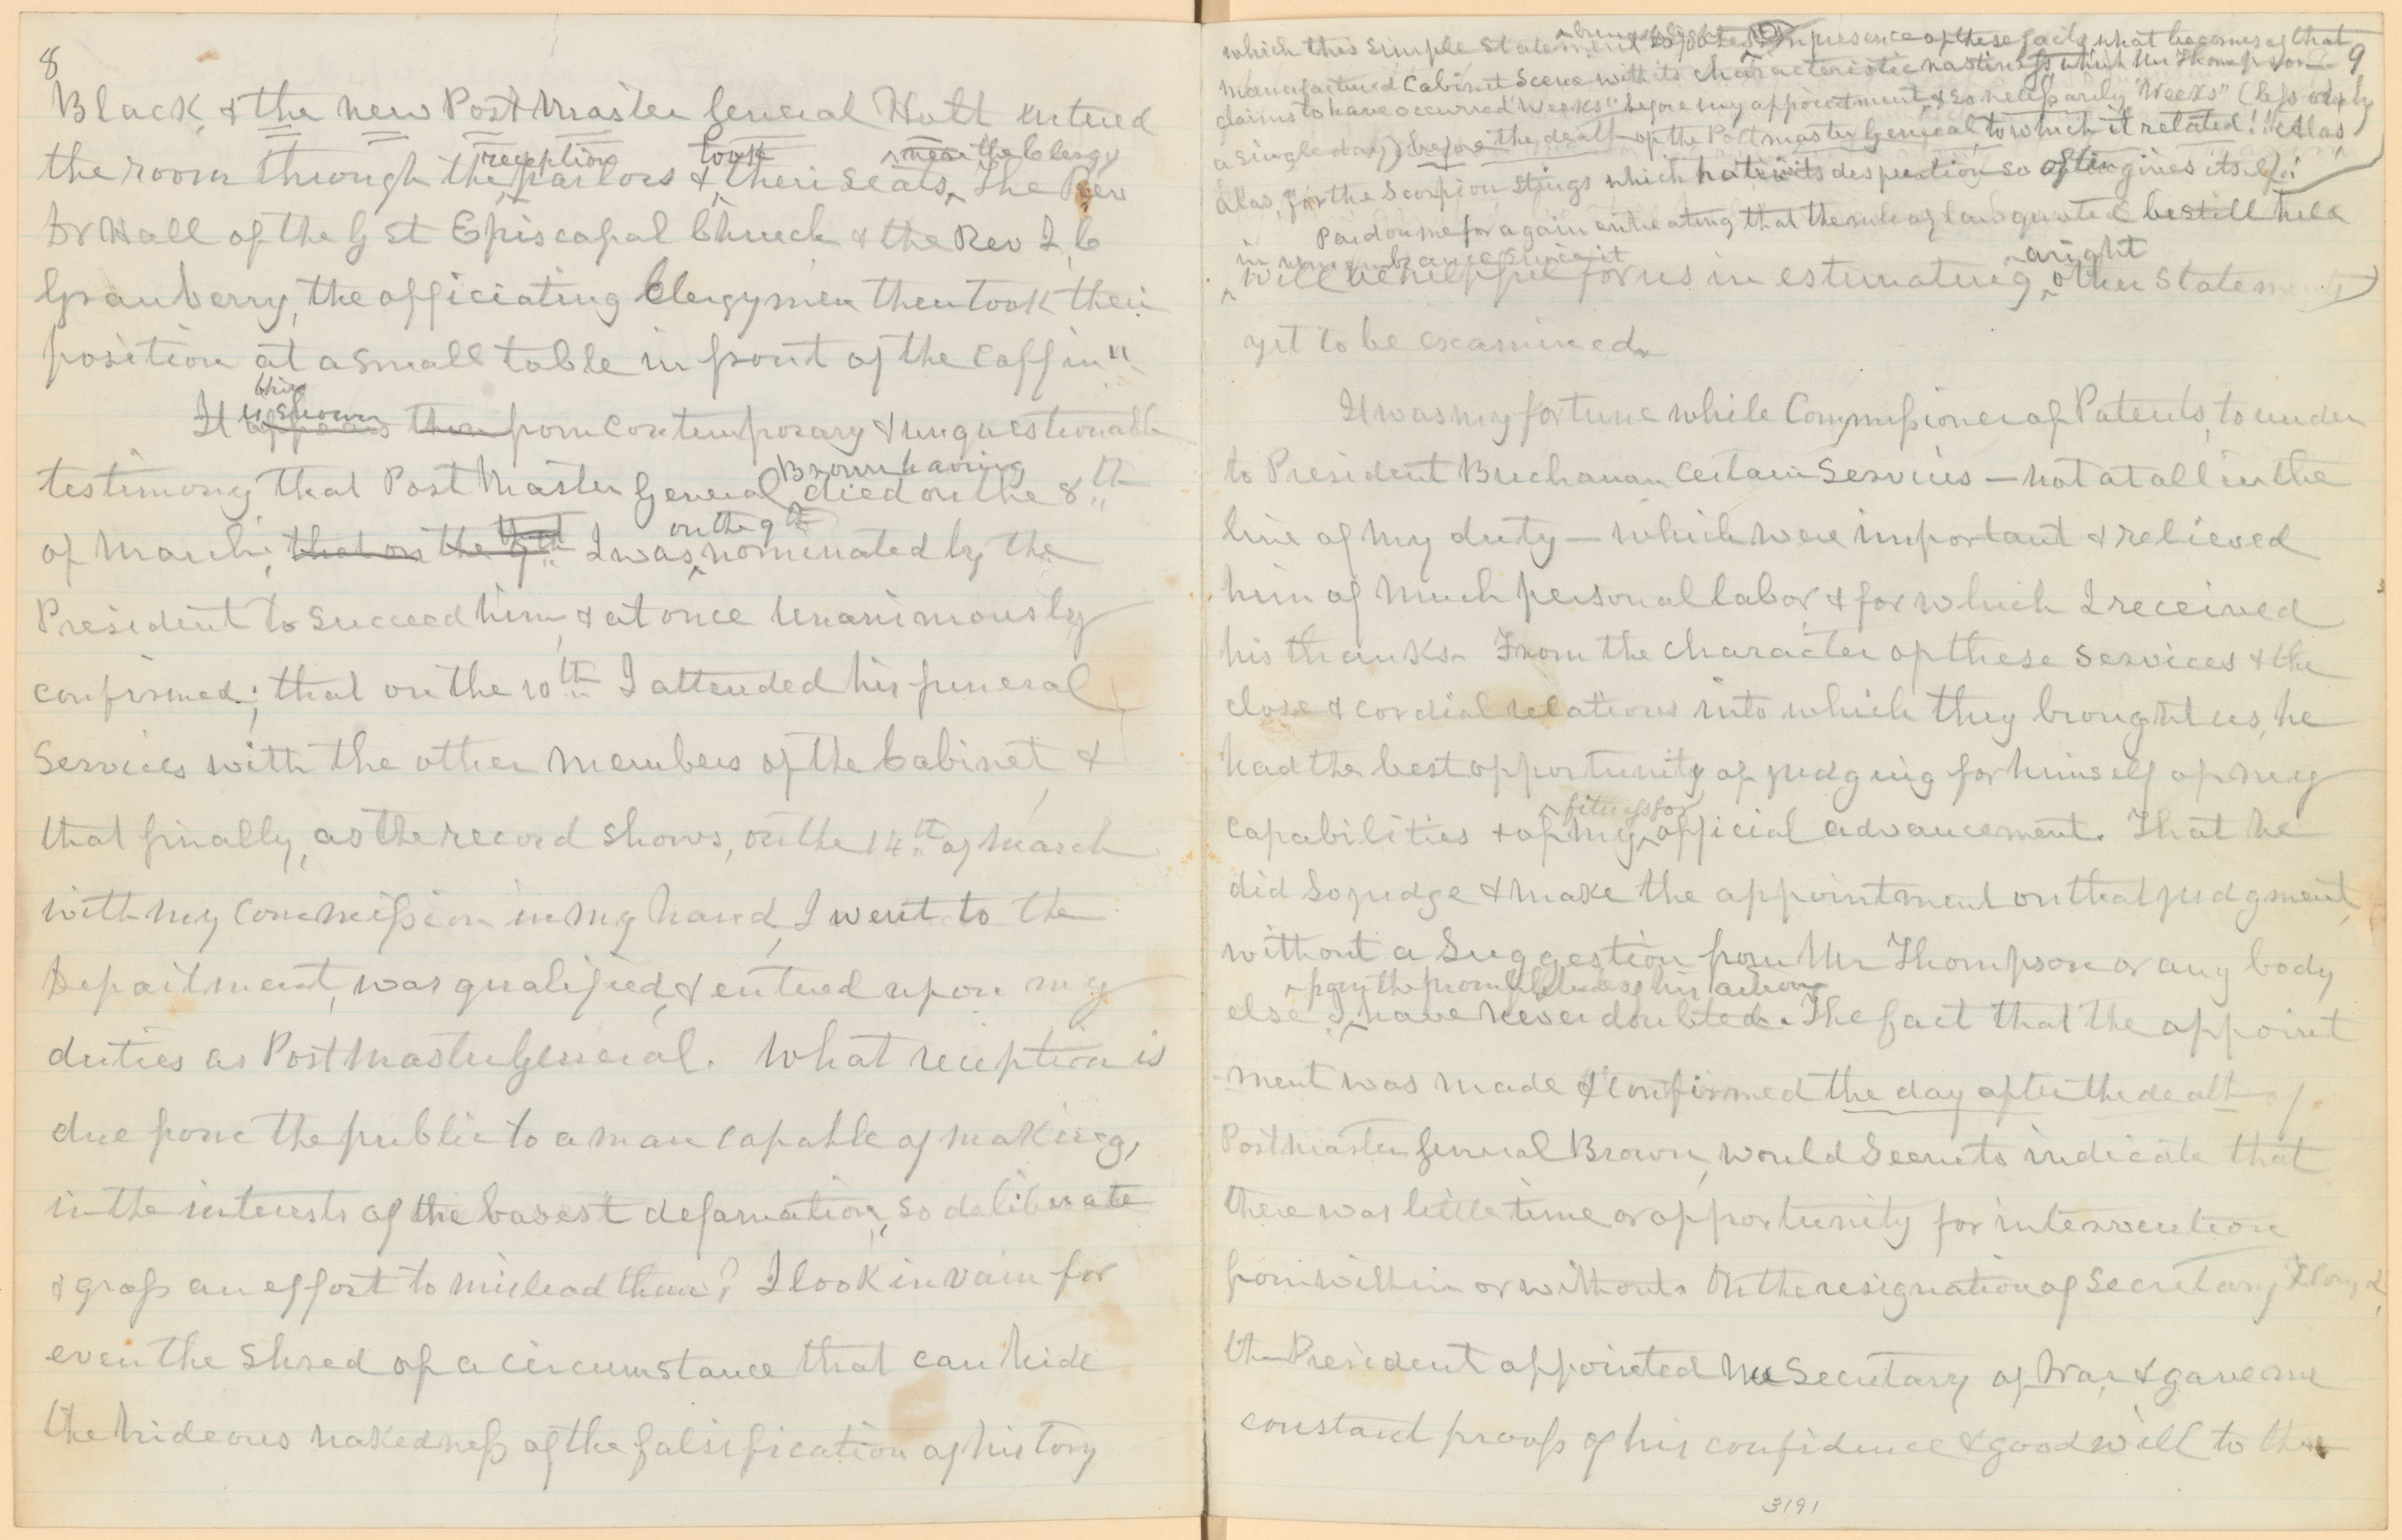 8
Black, & the new Post Master General Holt entered
the room through the reception parlors & took their seats near the Clergy The Rev
Dr Hall of the G St Episcopal Church & the Rev J, C
Granberry, the officiating Clergymen then took their
position at a small table in front of the coffin"
It is shown thus from contemporary & unquestionable
testimony that Post Master General Brown having died on the 8th
of March, that on the 9th I was on the 9th nominated by the
President to succeed him, & at once unanimously
confirmed; that on the 10th I attended his funeral
Services with the other members of the Cabinet, &
that finally, as the record shows, on the 14th of March
with my commission in my hand, I went to the
Department, was qualified, & entered upon my
duties as Post Master General. What reception is
due from the public to a man capable of making,
in the interests of the basest defamation, so deliberate
& gross an effort to mislead them? I look in vain for
even the shred of a circumstance that can hide
the hideous nakedness of the falsification of history
9
which this simple statement In presence of these facts what becomes of that
manufactured Cabinet Scene with its characteristic nastiness which Mr Thompson
claims to have occurred "weeks" before my appointment & so necessarily "weeks" (less only
a single day) before the death of the Postmaster General to which it related!! Alas
alas, for the Scorpion stings which hate in its desperation so often gives itself!
Pardon me for again entreating that the rule of law quoted be still held
in remembrance since it
will be helpful for us in estimating aright other statements
yet to be examined.
It was my fortune while Commissioner of Patents, to under
to President Buchanan certain Services — not at all in the
line of my duty — which were important & relieved
him of much personal labor & for which I received
his thanks. From the character of these services & the
close & cordial relations into which they brought us, he
had the best opportunity of judging for himself of my
capabilities & of my fitness for official advancement. That he
did so judge & make the appointment on that judgment,
without a Suggestion from Mr Thompson or any body
else, from the promptitude of his action I have never doubted. The fact that the appoint
-ment was made & confirmed the day after the death of
Postmaster General Brown, would seem to indicate that
there was little time or opportunity for intervention
from within or without. On the resignation of Secretary Floyd,
the President appointed me Secretary of War, & gave me
constant proofs of his confidence & good will to the
3191